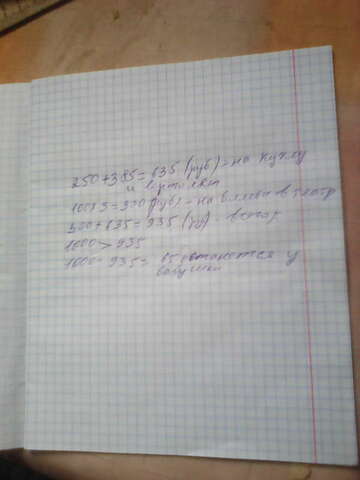 250+385=635 (руб) - на куклу
и вертолёт
100×3=300 (руб) - на 3 билета в театр
300+635=935 (руб) - всего
1000>935
1000-935= 65 останется у
бабушки